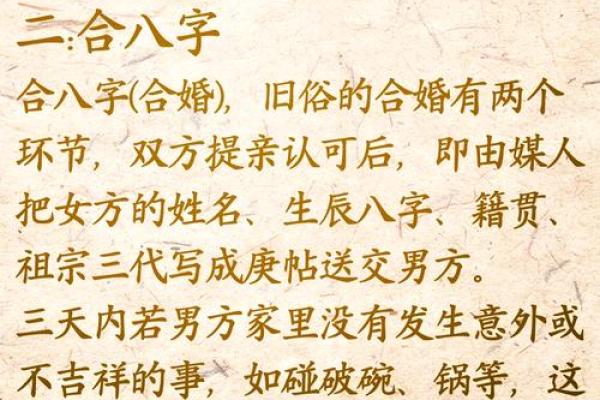 二:合八字
合八字(合婚)，旧俗的合婚有两个
环节，双方提亲认可后，即由媒人
把女方的姓名、生辰八字、籍贯、
祖宗三代写成庚帖送交男方。
三天内若男方家里没有发生意外或
不吉祥的事，如碰破碗、锅等，这